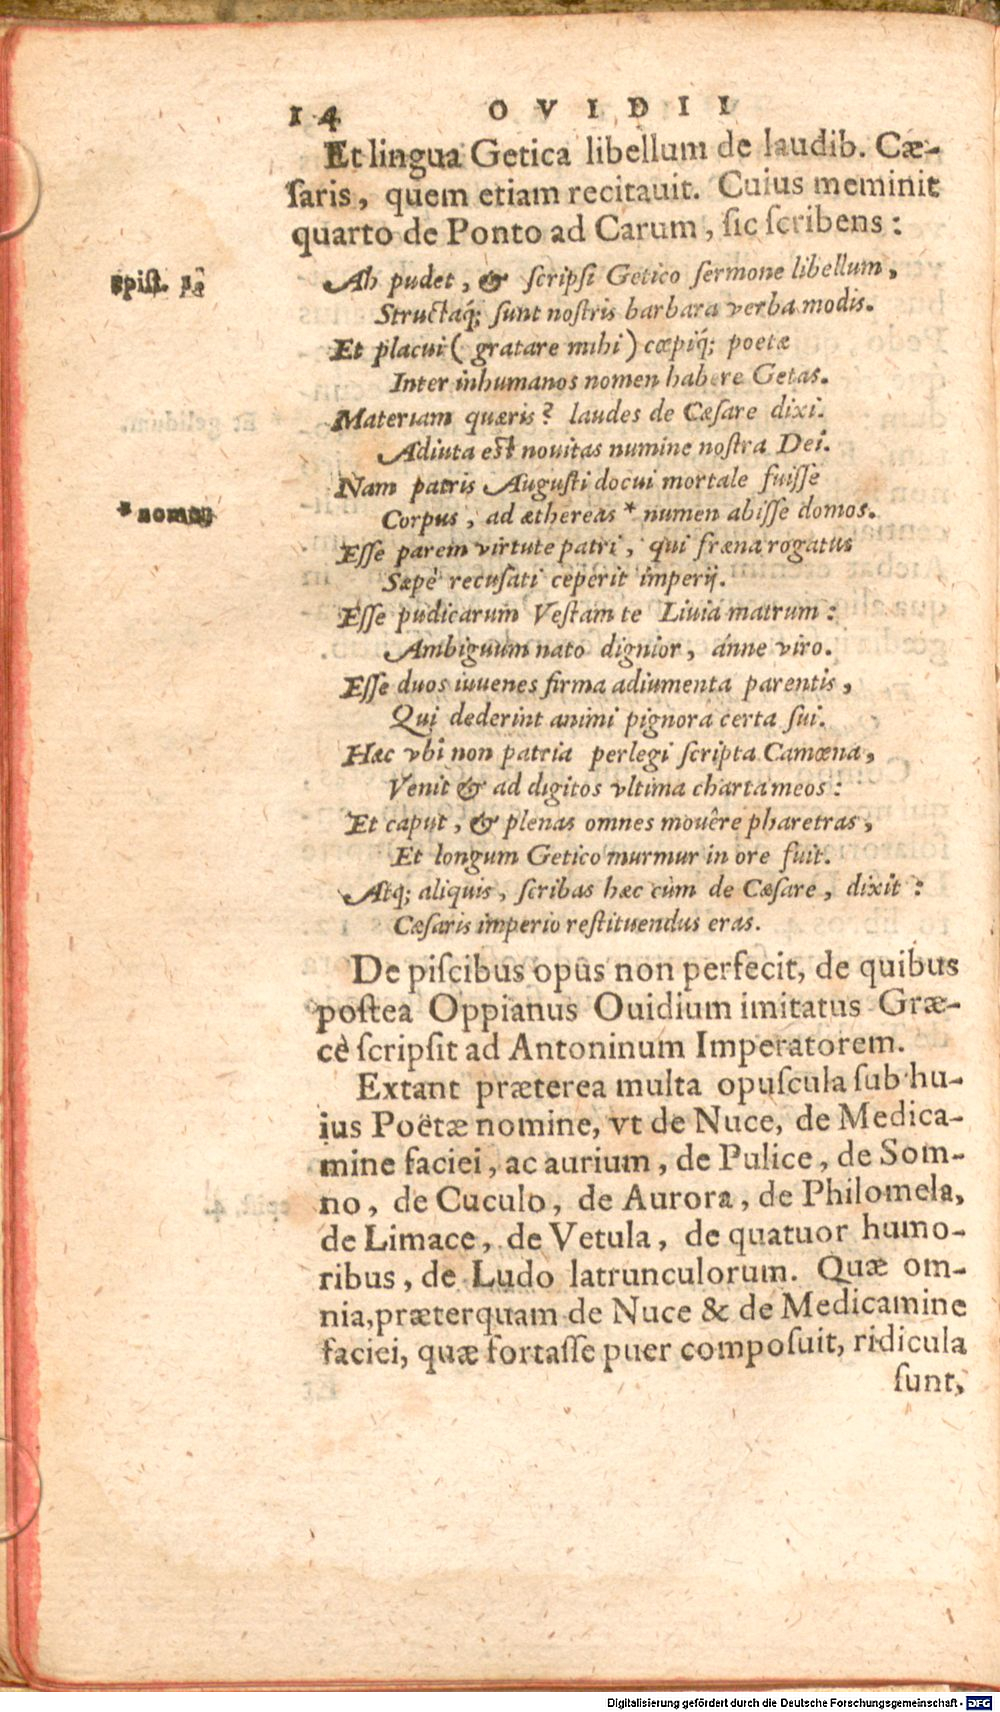 14 OVIDII
Et lingua Getica libellum de laudib. Cæ-
ſaris, quem etiam recitauit. Cuius meminit
quarto de Ponto ad Carum, ſic ſcribens:
epiſt.
Ah pudet, & ſcripſi Getico ſermone libellum,
Structaq́; ſunt noſtris barbara verba modis.
Et placui (gratare mihi) cœpiq́; poetæ
Inter inhumanos nomen habere Getas.
Materiam quæris? laudes de Cæſare dixi.
Adiuta eſt nouitas numine noſtra Dei.
Nam patris Auguſti docui mortale fuiſſe
* nomen
Corpus, ad æthereas * numen abiſſe domos.
Eſſe parem virtute patri, qui fræna rogatus
Sæpè recuſati ceperit imperij.
Eſſe pudicarum Veſtam te Liuia matrum:
Ambiguum nato dignior, ánne viro.
Eſſe duos iuuenes firma adiumenta parentis,
Qui dederint animi pignora certa ſui.
Hæc vbi non patria perlegi ſcripta Camœna,
Venit & ad digitos vltima charta meos:
Et caput, & plenas omnes mouêre pharetras,
Et longum Getico murmur in ore fuit.
Atq; aliquis, ſcribas hæc cùm de Cæſare, dixit:
Cæſaris imperio reſtituendus eras.
De piſcibus opus non perfecit, de quibus
poſtea Oppianus Ouidium imitatus Græ-
cè ſcripſit ad Antoninum Imperatorem.
Extant præterea multa opuſcula ſub hu-
ius Poëtæ nomine, vt de Nuce, de Medica-
mine faciei, ac aurium, de Pulice, de Som-
no, de Cuculo, de Aurora, de Philomela,
de Limace, de Vetula, de quatuor humo-
ribus, de Ludo latrunculorum. Quæ om-
nia, præterquam de Nuce & de Medicamine
faciei, quæ fortaſſe puer compoſuit, ridicula
ſunt,
Digitalisierung gefördert durch die Deutsche Forschungsgemeinschaft - DFG